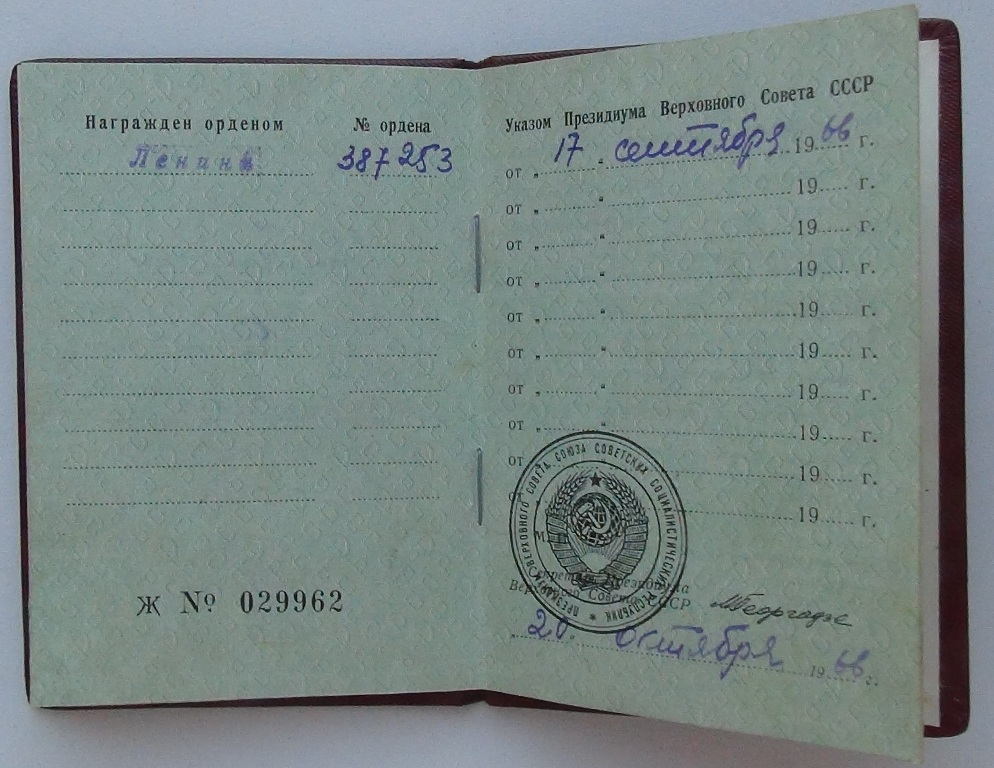 Награжден орденом № ордена
Ленина 387253
Ж № 029962
Указом Президиума Верховного Совета СССР
от „ 17 “ сентября 1966 г.
от „ “ 19 г.
от „ “ 19 г.
от „ “ 19 г.
от „ “ 19 г.
от „ “ 19 г.
от „ “ 19 г.
от „ “ 19 г.
от 19 г.
от 19 г.
М.
ПРЕЗИДИУМ ВЕРХОВНОГО СОВЕТА СОЮЗА СОВЕТСКИХ СОЦИАЛИСТИЧЕСКИХ РЕСПУБЛИК
Секретарь Президиума
Верховного Совета СССР МГеоргадзе
„ 20 „ октября 1966 г.